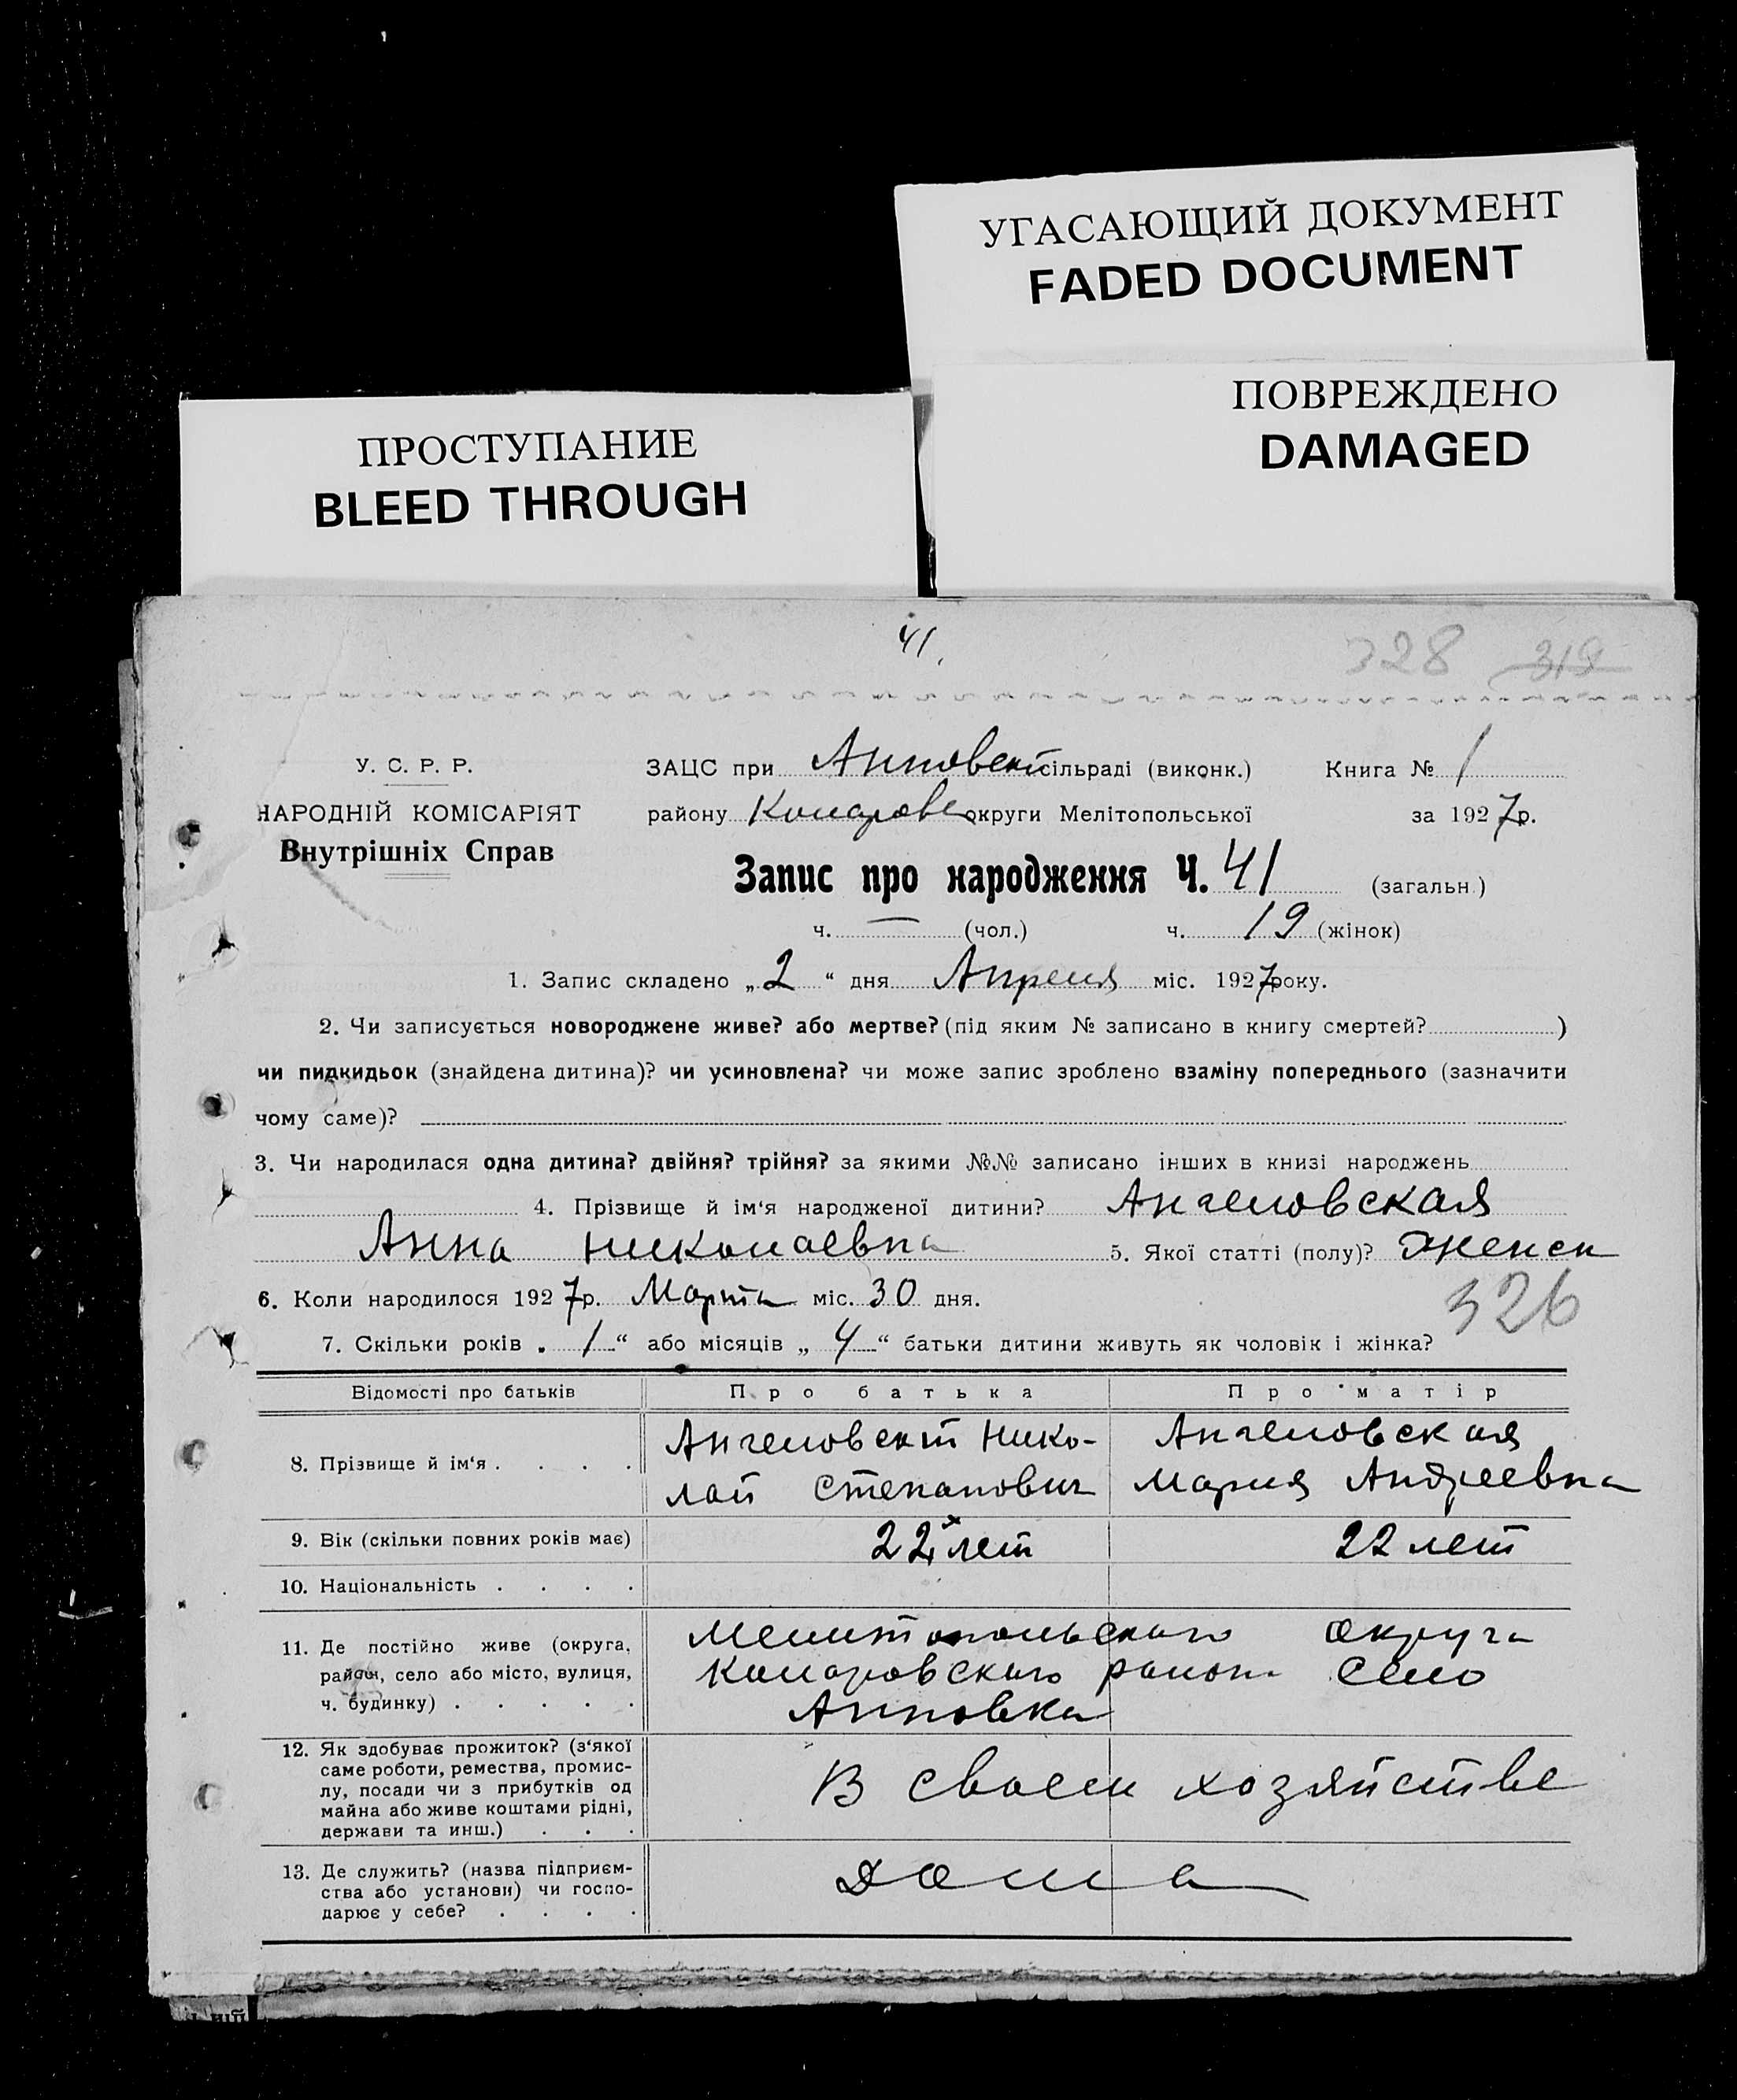 УГАСАЮЩИЙ ДОКУМЕНТ
FADED DOCUMENT
ПОВРЕЖДЕНО
DAMAGED
ПРОСТУПАНИЕ
BLEED THROUGH
41.
328 319
У. С. Р. Р.
НАРОДНІЙ КОМІСАРІЯТ
Внутрішніх Справ
ЗАЦС при Анновской сільраді (виконк.) Книга № 1
району округи Мелітопольської за 1927 р.
Запис про народження Ч. 41 (загальн.)
ч. — (чол.) ч. 19 (жінок)
1. Запис складено „ 2 “ дня Апреля міс. 1927 року.
2. Чи записується новороджене живе? або мертве? (під яким № записано в книгу смертей? )
чи пидкидьок (знайдена дитина)? чи усиновлена? чи може запис зроблено взаміну попереднього (зазначити
чому саме)?
3. Чи народилася одна дитина? двійня? трійня? за якими №№ записано інших в книзі народжень
4. Прізвище й ім‘я народженої дитини? Ангеловская
Анна Николаевна 5. Якої статті (полу)? Женск
6. Коли народилося 1927 р. Марта міс. 30 дня.
326
7. Скільки років „ 1 “ або місяців „ 4 “ батьки дитини живуть як чоловік і жінка?
Відомості про батьків Про батька Про матір
8. Прізвище й ім‘я . . . .
Ангеловский Нико-
лай Степанович
Ангеловская
Мария Андреевна
9. Вік (скільки повних років має) 22 лет 22 лет
10. Національність . . . .
11. Де постійно живе (округа,
район, село або місто, вулиця,
ч. будинку) . . . . .
Мелитопольского округа
района Село
Анновка
12. Як здобуває прожиток? (з‘якої
саме роботи, ремества, промис-
лу, посади чи з прибутків од
майна або живе коштами рідні,
держави та инш.) . . .
В своем хозяйстве
13. Де служить? (назва підприєм-
ства або установи) чи госпо-
дарює у себе? . . . .
Дома